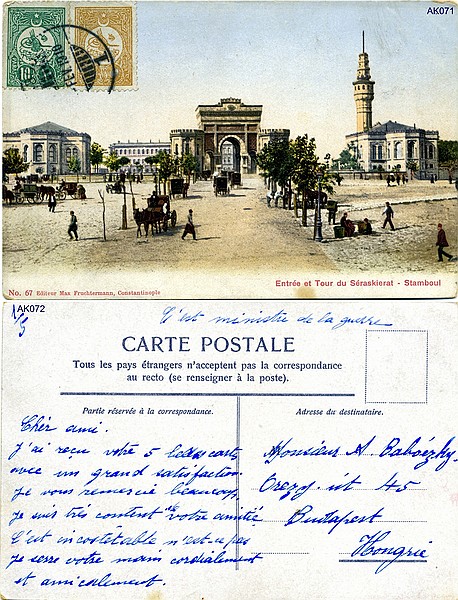 AK071
10
No. 67 Editeur Max Fruchtermann, Constantinople
Entrée et Tour du Séraskierat - Stamboul
AK072
C'est ministre de la guerre
CARTE POSTALE
Tous les pays étrangers n'acceptent pas la correspondance
au recto (se renseigner à la poste).
Partie réservée à la correspondance.
Chèr ami.
J'ai recu votre 5 belles carts
avec un grand satisfaction.
Je vous remercie beaucoup,
je suis très content de votre amitié
C'est incostétable n'est ce pas
je serre votre main cordialement
et amicalement.
Adresse du destinataire.
Monsieur A.
Orezy. út 45
Budapest
Hongrie